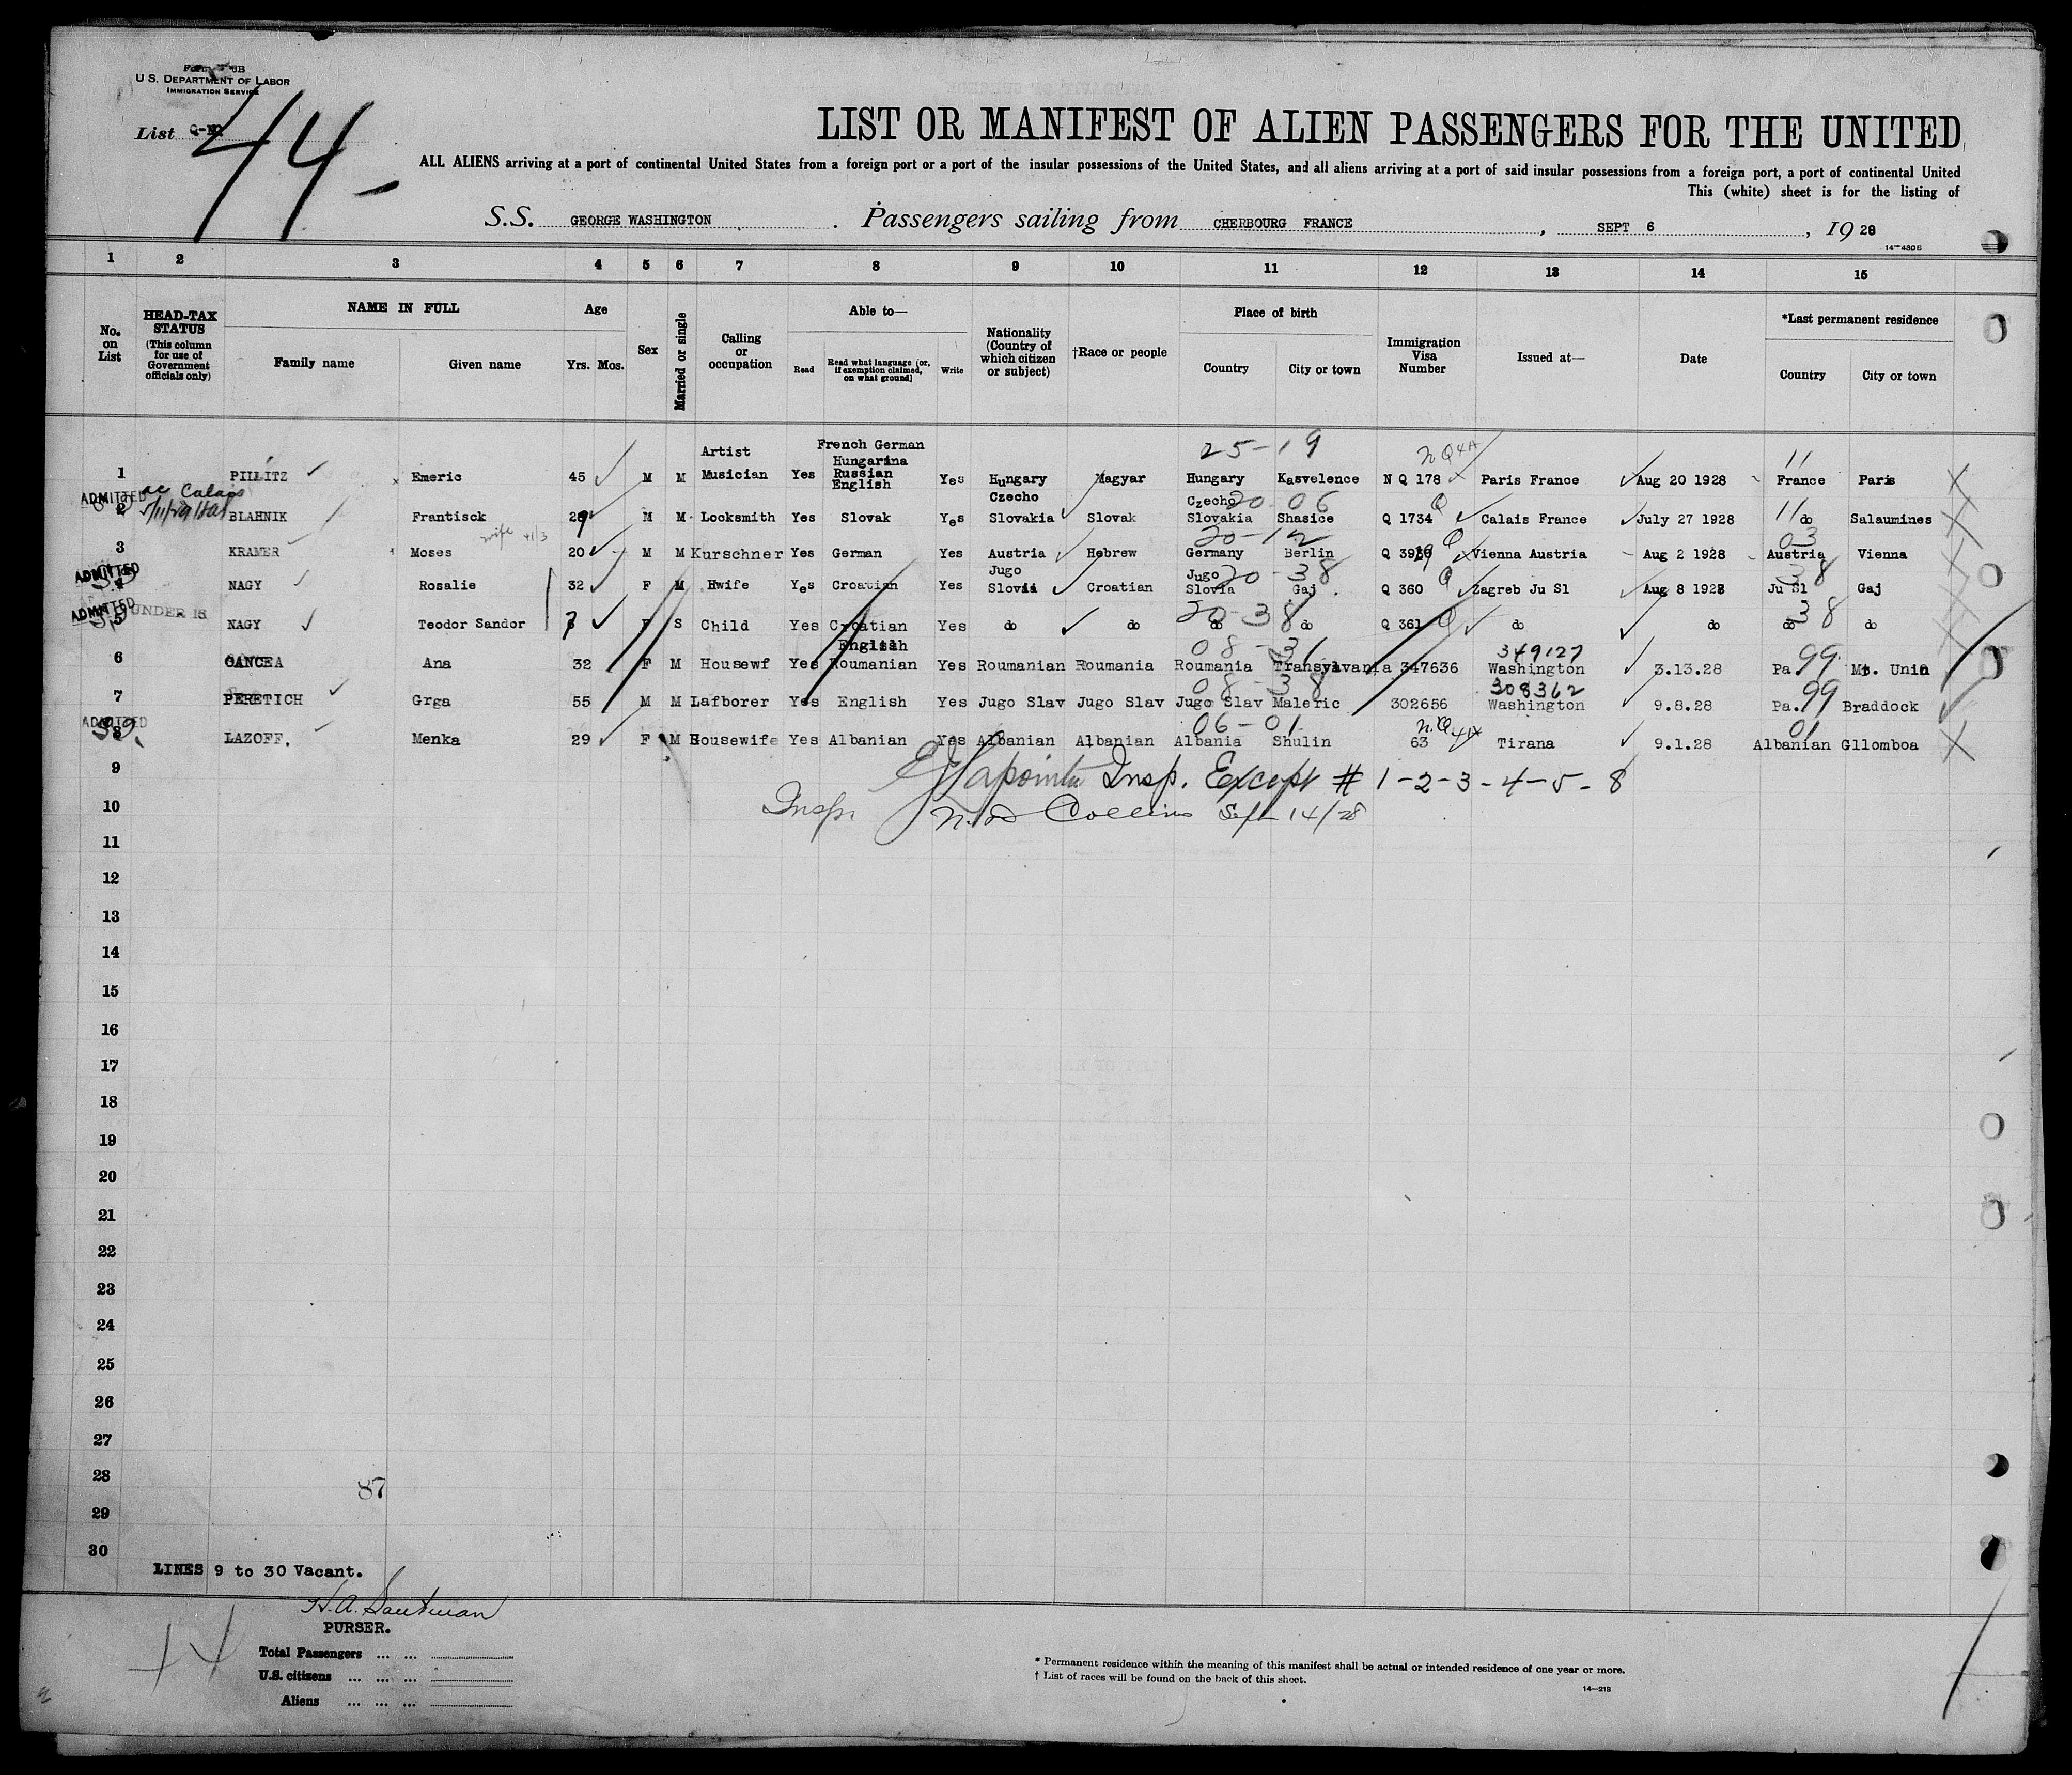 U.S. DEPARTMENT OF LABOR
IMMIGRATION SERVICE
List Q-NQ
44-
LIST OR MANIFEST OF ALIEN PASSENGERS FOR THE UNITED
ALL ALIENS arriving at a port of continental United States from a foreign port or a port of the insular possessions of the United States, and all aliens arriving at a port of said insular possessions from a foreign port, a port of continental United
This (white) sheet is for the listing of
S.S. GEORGE WASHINGTON . Passengers sailing from CHERBOURG FRANCE , SEPT 6 , 1928
14-430B
1 2 3 4 5 6 7 8 9 10 11 12 13 14 15
No. on List
HEAD-TAX STATUS (This column for use of Government officials only)
NAME IN FULL
Family name
Given name
Age
Yrs. Mos.
Sex
Married or single
Calling or occupation
Able to—
Read
Read what language [or, if exemption claimed, on what ground]
Write
Nationality (Country of which citizen or subject)
†Race or people
Place of birth
Country
City or town
Immigration Visa Number
Issued at—
Date
*Last permanent residence
Country
City or town
25-19 NQ4A 11
1 PILLITZ Emeric 45 M M Artist Musician Yes French German Hungarina Russian English Yes Hungary Magyar Hungary Kasvelence N Q 178 Paris France Aug 20 1928 France Paris
ADMITTED
20 06 Q 11
2 BLAHNIK Frantisck 29 M M Locksmith Yes Slovak Yes Czecho Slovakia Slovak Czecho Slovakia Shasice Q 1734 Calais France July 27 1928 do Salaumines
wife
20-12 Q 03
3 KRAMER Moses 20 M M Kurschner Yes German Yes Austria Hebrew Germany Berlin Q 3939 Vienna Austria Aug 2 1928 Austria Vienna
ADMITTED
20-38 Q 38
4 NAGY Rosalie 32 F M Hwife Yes Croatian Yes Jugo Slovia Croatian Jugo Slovia Gaj Q 360 Zagreb Ju Sl Aug 8 1928 Ju Sl Gaj
ADMITTED UNDER 16
20-38 Q 38
5 NAGY Teodor Sandor S Child Yes Croatian Yes do do do do Q 361 do do do do
08-31 349127 99
6 OANCEA Ana 32 F M Housewf Yes English Roumanian Yes Roumanian Roumania Roumania Transylvania 347636 Washington 3.13.28 Pa. Mt. Unin
08-38 308362 99
7 PERETICH Grga 55 M M Lafborer Yes English Yes Jugo Slav Jugo Slav Jugo Slav Maleric 302656 Washington 9.8.28 Pa. Braddock
ADMITTED
06-01 01
8 LAZOFF, Menka 29 F M Housewife Yes Albanian Yes Albanian Albanian Albania Shulin 63 Tirana 9.1.28 Albanian Gllomboa
9 Lapointe Insp. Except # 1-2-3-4-5-8
10 Insp. Collins Sept 14/28
11
12
13
14
15
16
17
18
19
20
21
22
23
24
25
26
27
28
87
29
30
LINES 9 to 30 Vacant.
PURSER.
Total Passengers ... ...
U.S. citizens ... ... ...
Aliens ... ... ...
44
* Permanent residence within the meaning of this manifest shall be actual or intended residence of one year or more.
† List of races will be found on the back of this sheet.
14-213